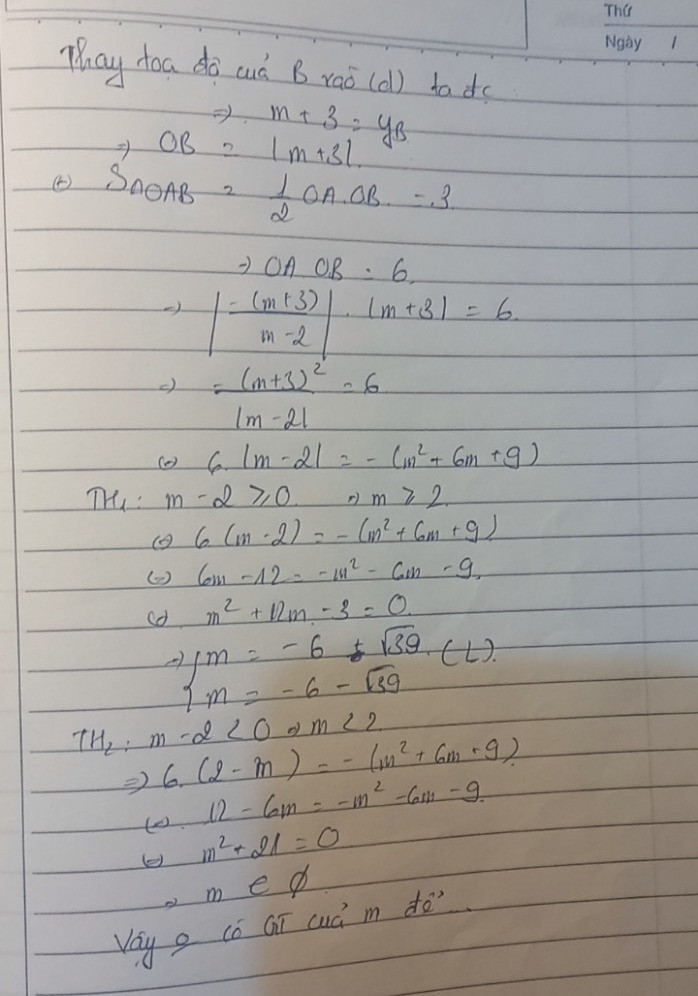 Thứ
Ngày /
Thay toạ độ của B vào (d) ta đc
⇒ m + 3 = yB
⇒ OB = |m+3|.
(+) SΔOAB = 1/2 OA.OB = 3
⇒ OA.OB = 6
⇒ |-(m+3)/(m-2)| . |m+3| = 6
⇒ -(m+3)²/|m-2| = 6
(=) 6.|m-2| = -(m²+6m+9)
TH₁: m-2 ⩾ 0 ⇒ m ⩾ 2
(=) 6(m-2) = -(m²+6m+9)
(=) 6m-12 = -m²-6m-9
(=) m²+12m-3 = 0
⇒ { m = -6 + √39 (L)
{ m = -6 - √39
TH₂: m-2 < 0 ⇒ m < 2
⇒ 6.(2-m) = -(m²+6m+9)
(=) 12-6m = -m²-6m-9
(=) m²+21 = 0
⇒ m ∈ ∅
Vậy o có GT của m để...